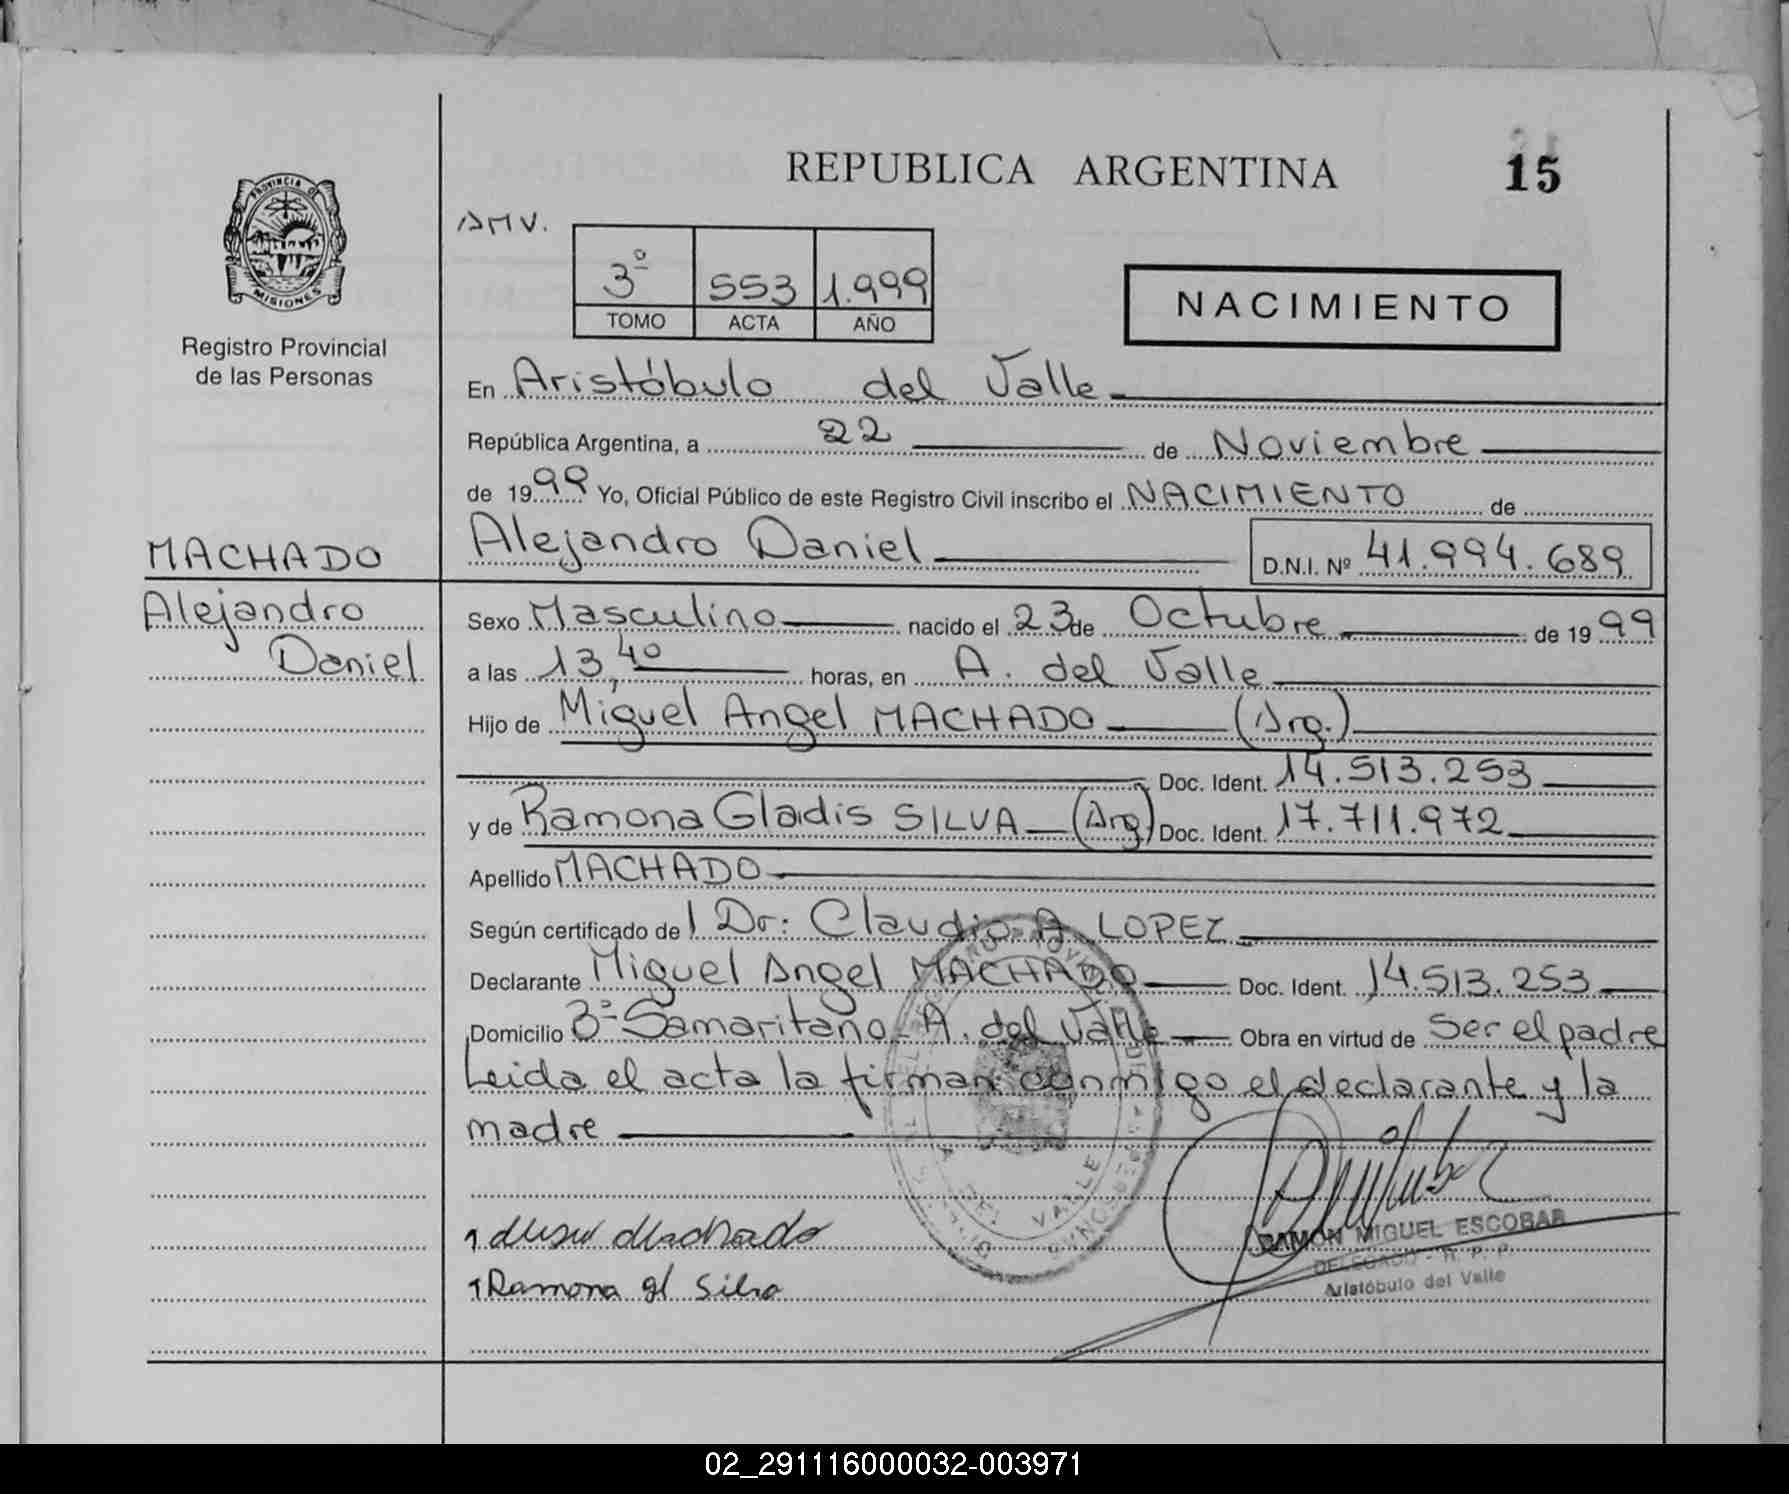 REPUBLICA ARGENTINA
15
PROVINCIA DE
MISIONES
Registro Provincial
de las Personas
AMV.
3º 553 1.999
TOMO ACTA AÑO
NACIMIENTO
En Aristóbulo del Valle
República Argentina, a 22 de Noviembre
de 1999 Yo, Oficial Público de este Registro Civil inscribo el NACIMIENTO de
Alejandro Daniel D.N.I. Nº 41.994.689
MACHADO
Alejandro
Daniel
Sexo Masculino nacido el 23 de Octubre de 1999
a las 13,40 horas, en A. del Valle
Hijo de Miguel Angel MACHADO (Arg.)
Doc. Ident. 14.513.253
y de Ramona Gladis SILVA (Arg) Doc. Ident. 17.711.972
Apellido MACHADO
Según certificado del Dr: Claudio A. LOPEZ
Declarante Miguel Angel MACHADO Doc. Ident. 14.513.253
Domicilio Bº Samaritano A. del Valle Obra en virtud de Ser el padre
Leida el acta la firman conmigo el declarante y la
madre
DEL VALLE
Machado
Ramona gl Silva
RAMON MIGUEL ESCOBAR
DELEGADO - R. P. P.
Aristóbulo del Valle
02_291116000032-003971